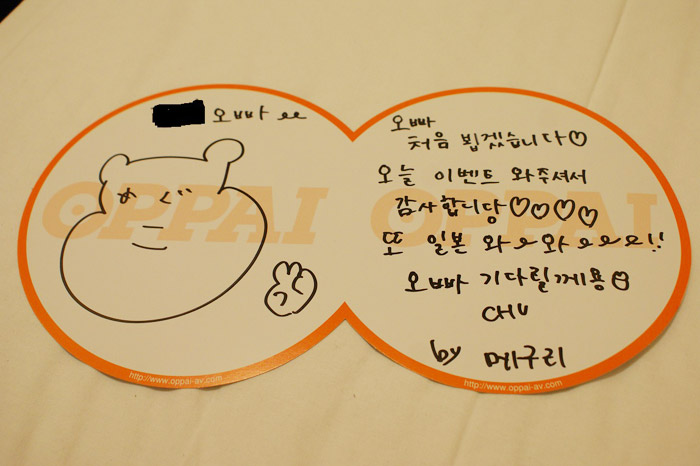 오빠 ee
めぐ
OPPAI
http://www.oppai-av.com
오빠
처음 뵙겠습니다♡
오늘 이벤트 와주셔서
감사합니당♡♡♡♡
OPPAI
또 일본 와~와~~~!!
오빠 기다릴께용♡
CHU
by 메구리
http://www.oppai-av.com